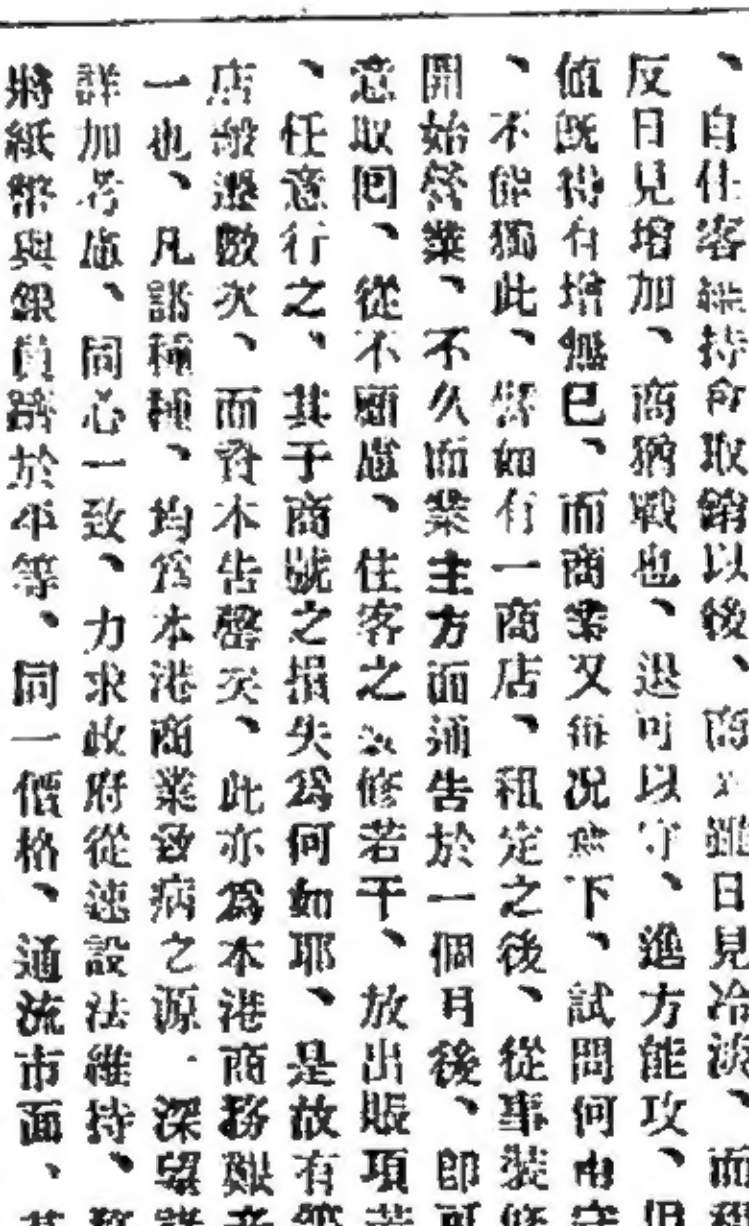 、自住客維持命取銷以後、商業雖日見冷淡、而租
反日見增加、商猶戰也、退可以守、進方能攻、但
值既待有增無已、而商業又每况愈下、試問何由守
、不能獨此、譬如有一商店、租定之後、從事裝修
開始營業、不久而業主方面通告於一個月後、即可
意取回、從不顧慮、住客之修若干、放出賬項若
、任意行之、其于商號之損失爲何如耶、是故有等
店般遷數次、而資本告罄矣、此亦爲本港商務艱
一也、凡諸種種、均爲本港商業致病之源．深望諸
詳加考慮、同心一致、力求政府從速設法維持、務
將紙幣與銀員躋於平等、同一價格、通流市面、其